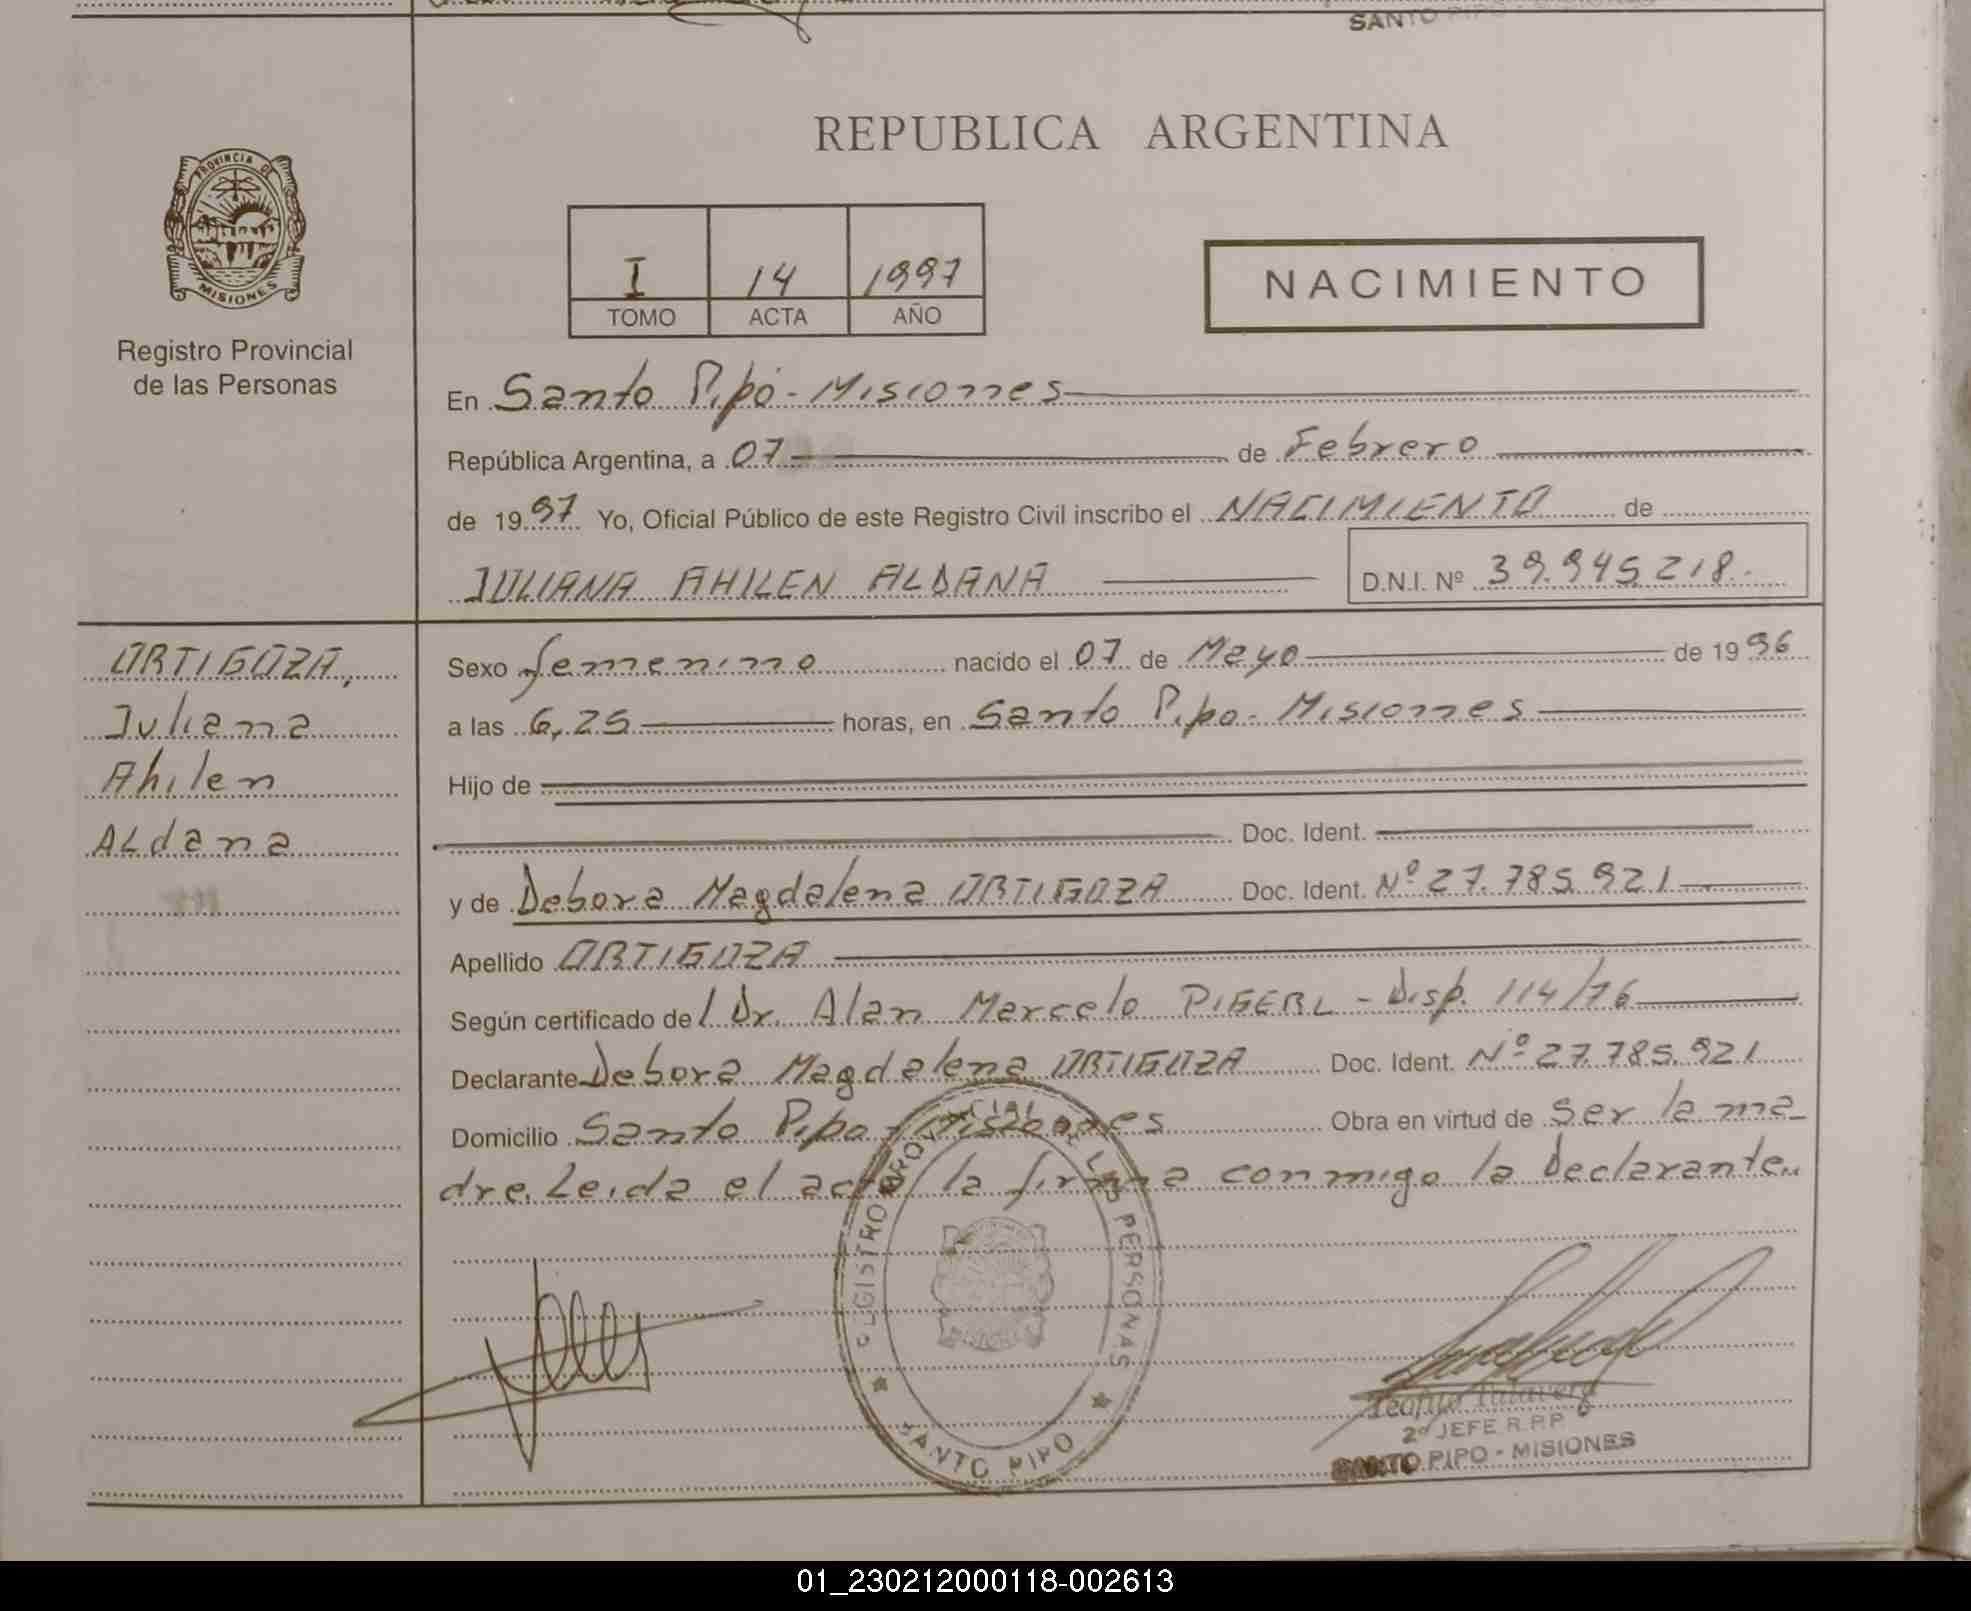 SANTO PIPO - MISIONES
REPUBLICA ARGENTINA
PROVINCIA DE
MISIONES
Registro Provincial
de las Personas
I 14 1997
TOMO ACTA AÑO
NACIMIENTO
En Santo Pipó - Misiones
República Argentina, a 07 de Febrero
de 1997 Yo, Oficial Público de este Registro Civil inscribo el NACIMIENTO de
JULIANA AHILEN ALDANA D.N.I. Nº 39.945.218.
ORTIGOZA,
Juliana
Ahilen
Aldana
Sexo femenino nacido el 07 de Mayo de 1996
a las 6,25 horas, en Santo Pipo - Misiones
Hijo de
Doc. Ident.
y de Debora Magdalena ORTIGOZA Doc. Ident. Nº 27.785.921
Apellido ORTIGOZA
Según certificado del Dr. Alan Marcelo PIGERL - Disp. 114/76
Declarante Debora Magdalena ORTIGOZA Doc. Ident. Nº 27.785.921
Domicilio Santo Pipo - Misiones Obra en virtud de ser la ma_
dre. Leida el acta, la firma conmigo la Declarante..
PERSONAS
SANTO PIPO
Teofilo Talavera
2º JEFE R.P.P
SANTO PIPO - MISIONES
01_230212000118-002613